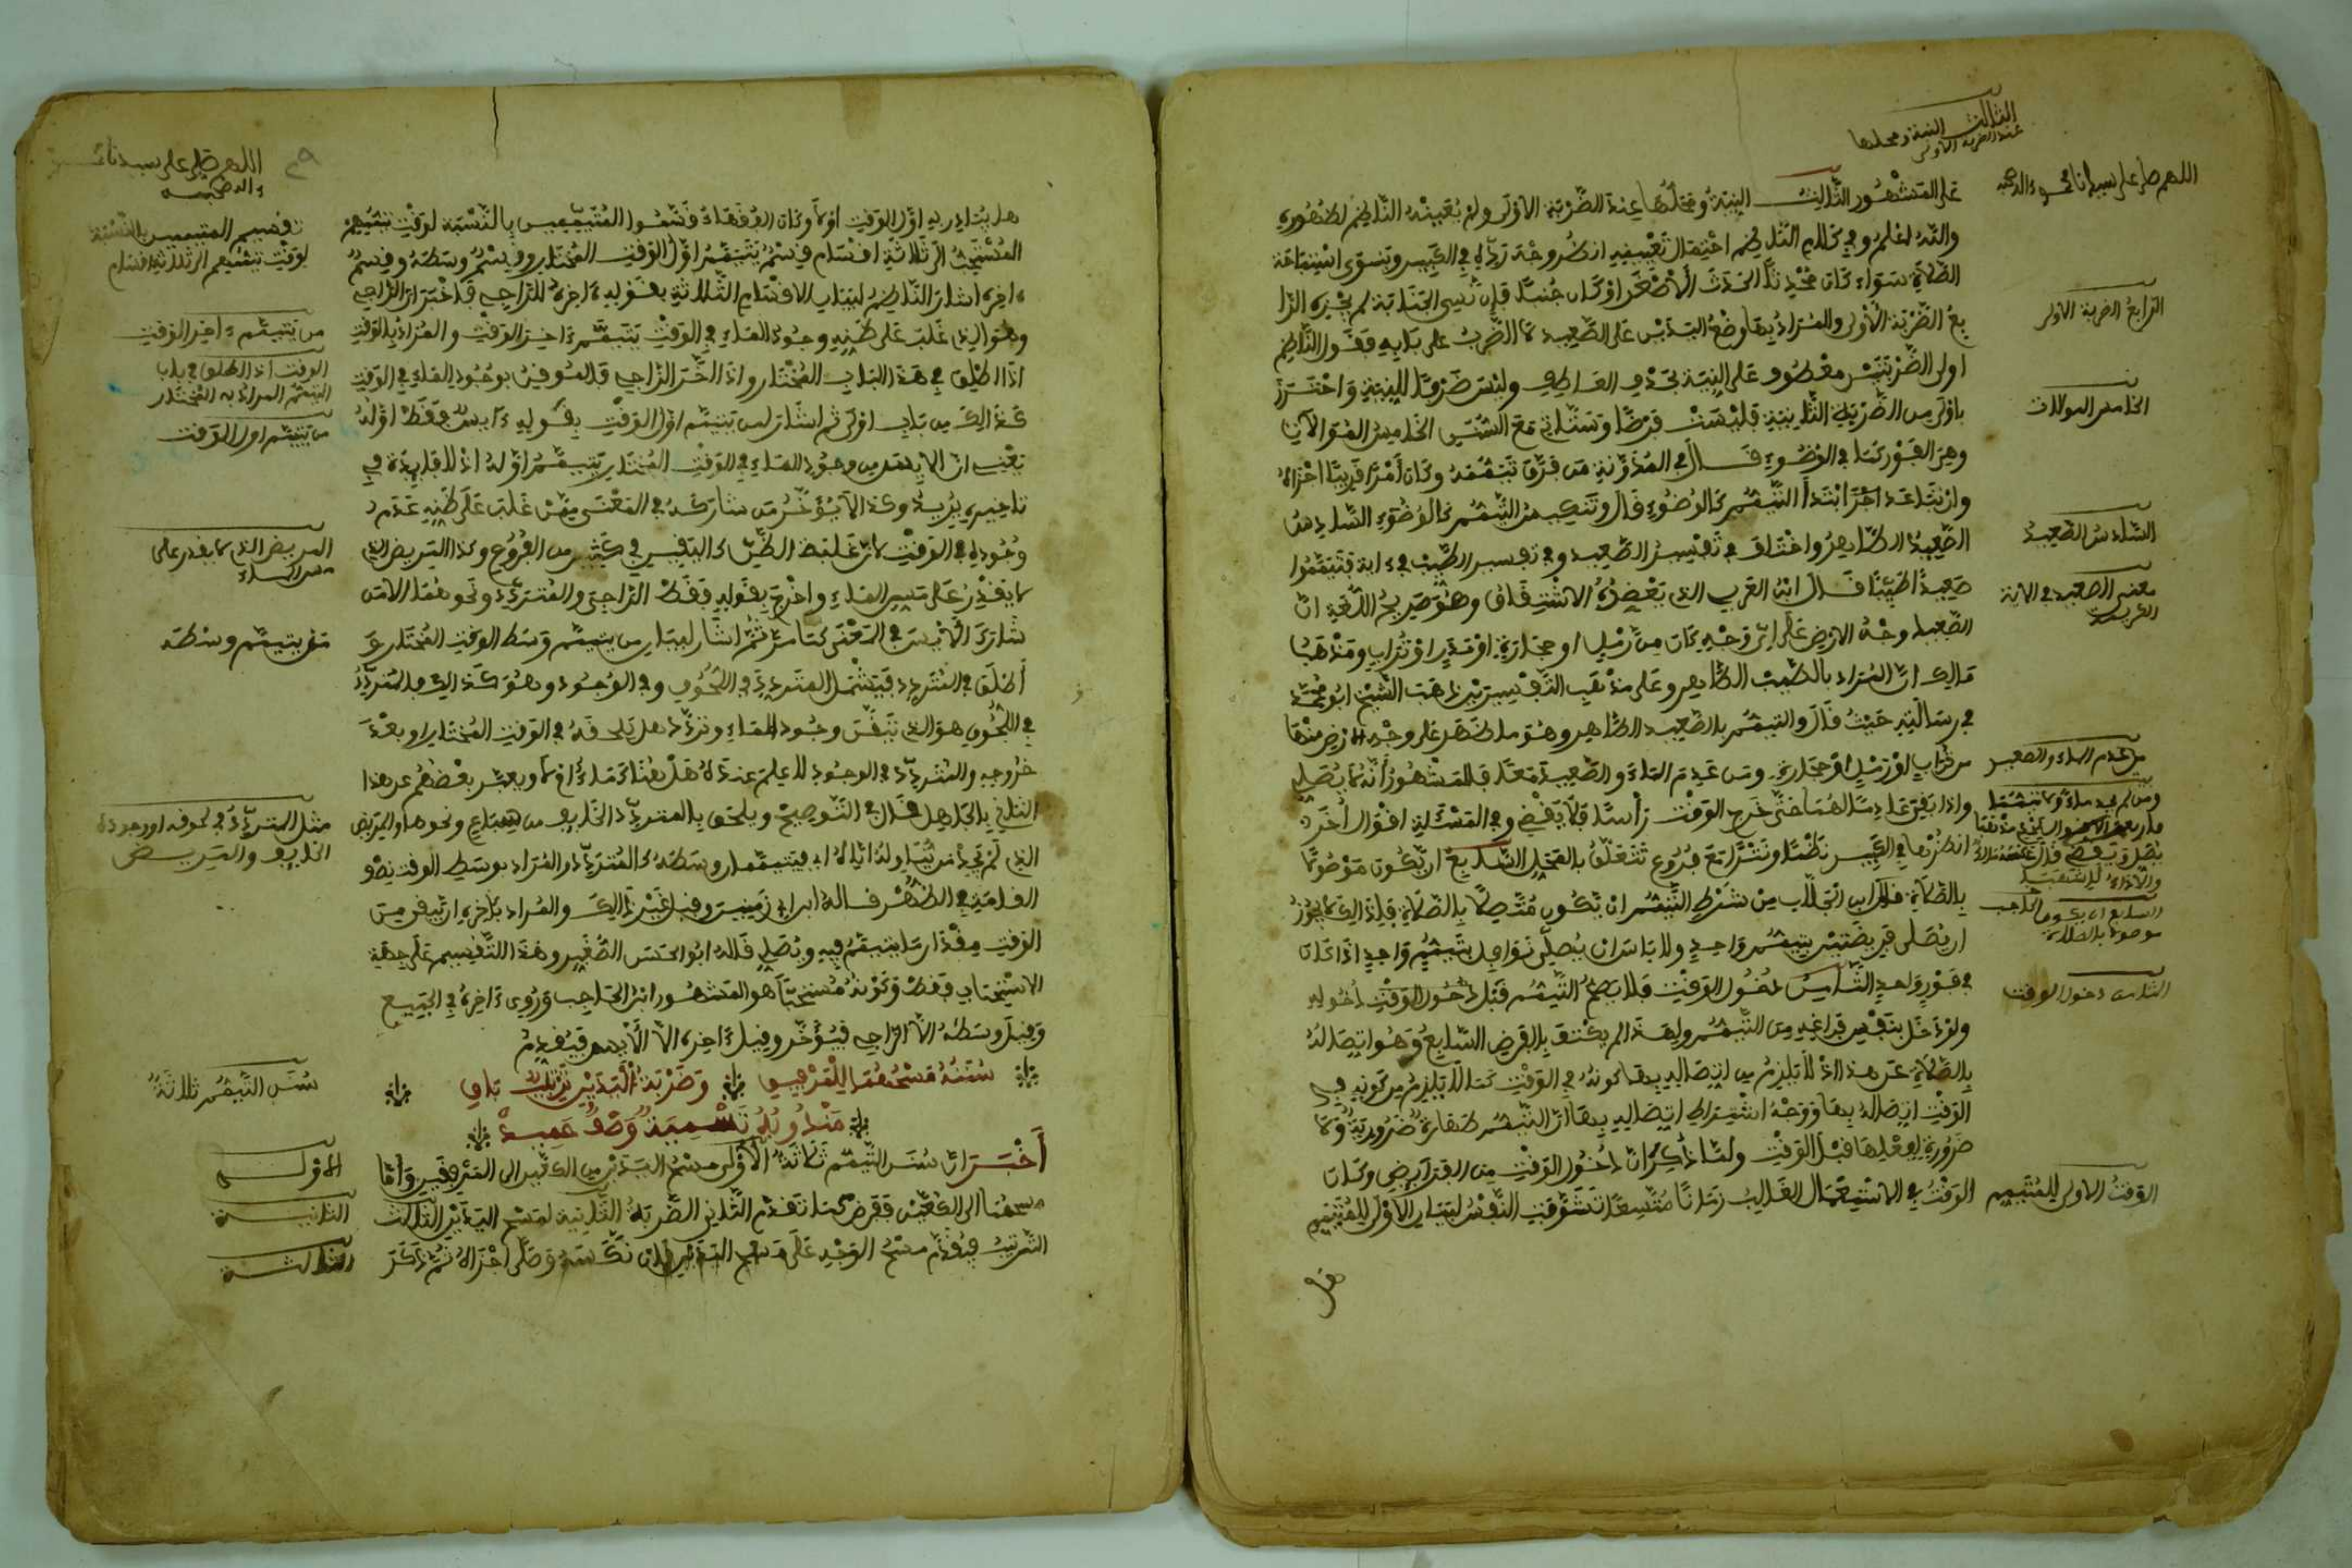 الثالث النية ومحلها
عند الضربة الاولى
اللهم صل على سيدنا محمد وءاله وصحبه
على المشهور الثالث النية ومحلها عند الضربة الاولى ولم يعينه الناظم لظهوره
والله اعلم وفي كلام الناظم احتمال تعسفي انظر وجه رده في الكبير وينوي استباحة
الصلاة سواء كان محدثا الحدث الاصغر او كان جنبا فإن نسي الجنابة لم يجزه الرا
بع الضربة الاولى والمراد بها وضع اليدين على الصعيد لا الضرب على بابه فقول الناظم
اولى الضربتين معطوف على النية بحذف العاطف وليس ضرفا للنية واحترز
باولى من الضربة الثانية فليست فرضا وستاتي مع السنن الخامس الموالات
وهي الفور كما في الوضوء قال في المدونة من فرق تيممه وكان امرا قريبا اجزاه
وان تباعد اجزا ابتدأ التيمم كالوضوء قال وتنكيس التيمم كالوضوء السادس
الصعيد الطاهر واختلف في تفسير الصعيد وفي تفسير الطيب في ءاية فتيمموا
صعيدا طيبا قال ابن العربي الذي يعضده الاشتقاق وهو صريح اللغة ان
الصعيد وجه الارض على اي وجه كان من رمل او حجارة او مدر او تراب ومذهب
مالك ان المراد بالطيب الطاهر وعلى مذهب التفسيرين ذهب الشيخ ابو محمد
في رسالته حيث قال والتيمم بالصعيد الطاهر وهو ما ظهر على وجه الارض منها
من تراب او رمل او حجارة ومن عدم الماء والصعيد معا فالمشهور أنه لا يصلي
واذا بقي عادما لهما حتى خرج الوقت رأسا فلا يقضي وفي المسئلة اقوال أخر
انظرها في الكبير نظما ونثرا مع فروع تتعلق بالمحل السابع ان يكون موصولا
بالصلاة قال ابن الجلاب من شرط التيمم ان يكون متصلا بالصلاة فلذلك لا يجوز
ان يصلى فريضتين بتيمم واحد ولا باس ان يصلي نوافل بتيمم واحد اذا كان
في فور واحد الثامن دخول الوقت فلا يصح التيمم قبل دخول الوقت
ولو دخل بنفس فراغه من التيمم ولهذا لم يكتف بالفرض السابع وهو اتصاله
بالصلاة عن هذا اذ لا يلزم من اتصاله بها كونه في الوقت كما لا يلزم من كونه في
الوقت اتصاله بها ووجه اشتراط اتصاله بها ان التيمم طهارة ضرورية ولا
ضرورة لفعلها قبل الوقت ولما ذكر ان دخول الوقت من الفرائض وكان
الوقت في الاستعمال الغالب زمانا متسعا تشوفت النفس لبيان الاولى للمتيمم
هل
الرابع الضربة الاولى
الخامس الموالات
السادس الصعيد
معنى الصعيد في الاية
الكريمة
من عدم الماء والصعيد
السابع ان يكون
موصولا بالصلاة
الثامن دخول الوقت
الوقت الاولى للمتيمم
اللهم صل على سيدنا
وءاله وصحبه
هل يبادر به اول الوقت او لا وكان الفقهاء قسموا المتيممين بالنسبة لوقت تيممهم
المستحب الى ثلاثة اقسام قسم يتيمم اول الوقت المختار وقسم وسطه وقسم
ءاخره اشار الناظم لبيان الاقسام الثلاثة بقوله ءاخره للراجي فاخبر ان الراجي
وهو الذي غلب على ظنه وجود الماء في الوقت يتيمم ءاخر الوقت والمراد بالوقت
اذا اطلق في هذا الباب المختار واذا اخر الراجي فالموقن بوجود الماء في الوقت
كذلك من باب اولى ثم اشار لمن يتيمم اول الوقت بقوله ءايس فقط اوله
يعني ان الايس من وجود الماء في الوقت المختار يتيمم اوله اذ لا فايدة في
تاخيره يريد وكذا لا يؤخر من شاركه في المعنى ممن غلب على ظنه عدم
وجوده في الوقت لان غلبة الظن كاليقين في كثير من الفروع وكذا المريض الذي
لا يقدر على مس الماء واخرج بقوله فقط الراجي والمتردد ونحوهما لا من
شارك الايس في المعنى كما مر ثم اشار لبيان من يتيمم وسط الوقت المختار
أطلق في المتردد فيشمل المتردد في اللحوق وفي الوجود وهو كذلك فالمتردد
في اللحوق هو الذي تيقن وجود الماء وتردد هل يلحقه في الوقت المختار او بعد
خروجه والمتردد في الوجود لا علم عنده هل هنا ك ماء ام لا ويعبر بعضهم عن هذا
الثاني بالجاهل قال في التوضيح ويلحق بالمتردد الخايف من سباع ونحوها والمريض
الذي لم يجد من يناوله اياه فيتيممان وسطه كالمتردد والمراد بوسط الوقت نصف
القامة في الظهر قاله ابن ابي زمنين وقيل غير ذلك والمراد باخره ان يبقى من
الوقت مقدار ما يتيمم فيه ويصلي قاله ابو الحسن الصغير وهذا التقسيم على جهة
الاستحباب فقط وكونه مستحبا هو المشهور ابن الحاجب وروي ءاخره في الجميع
وقيل وسطه الا الراجي فيؤخر وقيل ءاخره الا الايس فيقدم
سننه مسحهما للمرفق وضربة اليدين ترتيب بقي
مندوبه تسمية وصف حميد
أخبر ان سنن التيمم ثلاثة الاولى مسح اليدين من الكوعين الى المرفقين واما
مسحهما الى الكوعين ففرض كما تقدم الثاني الضربة الثانية لمسح اليدين الثالث
الترتيب فيقدم مسح الوجه على مسح اليدين فان نكسه وصلى اجزاه ثم ذكر
تقسيم المتيممين بالنسبة
لوقت تيممهم الى ثلاثة اقسام
من يتيمم ءاخر الوقت
الوقت اذا اطلق في باب
التيمم المراد به المختار
من يتيمم اول الوقت
المريض الذي لا يقدر على
مس الماء
من يتيمم وسطه
مثل المتردد في لحوقه او وجوده
الخايف والمريض
سنن التيمم ثلاثة
الاولى
الثانية
الثالثة